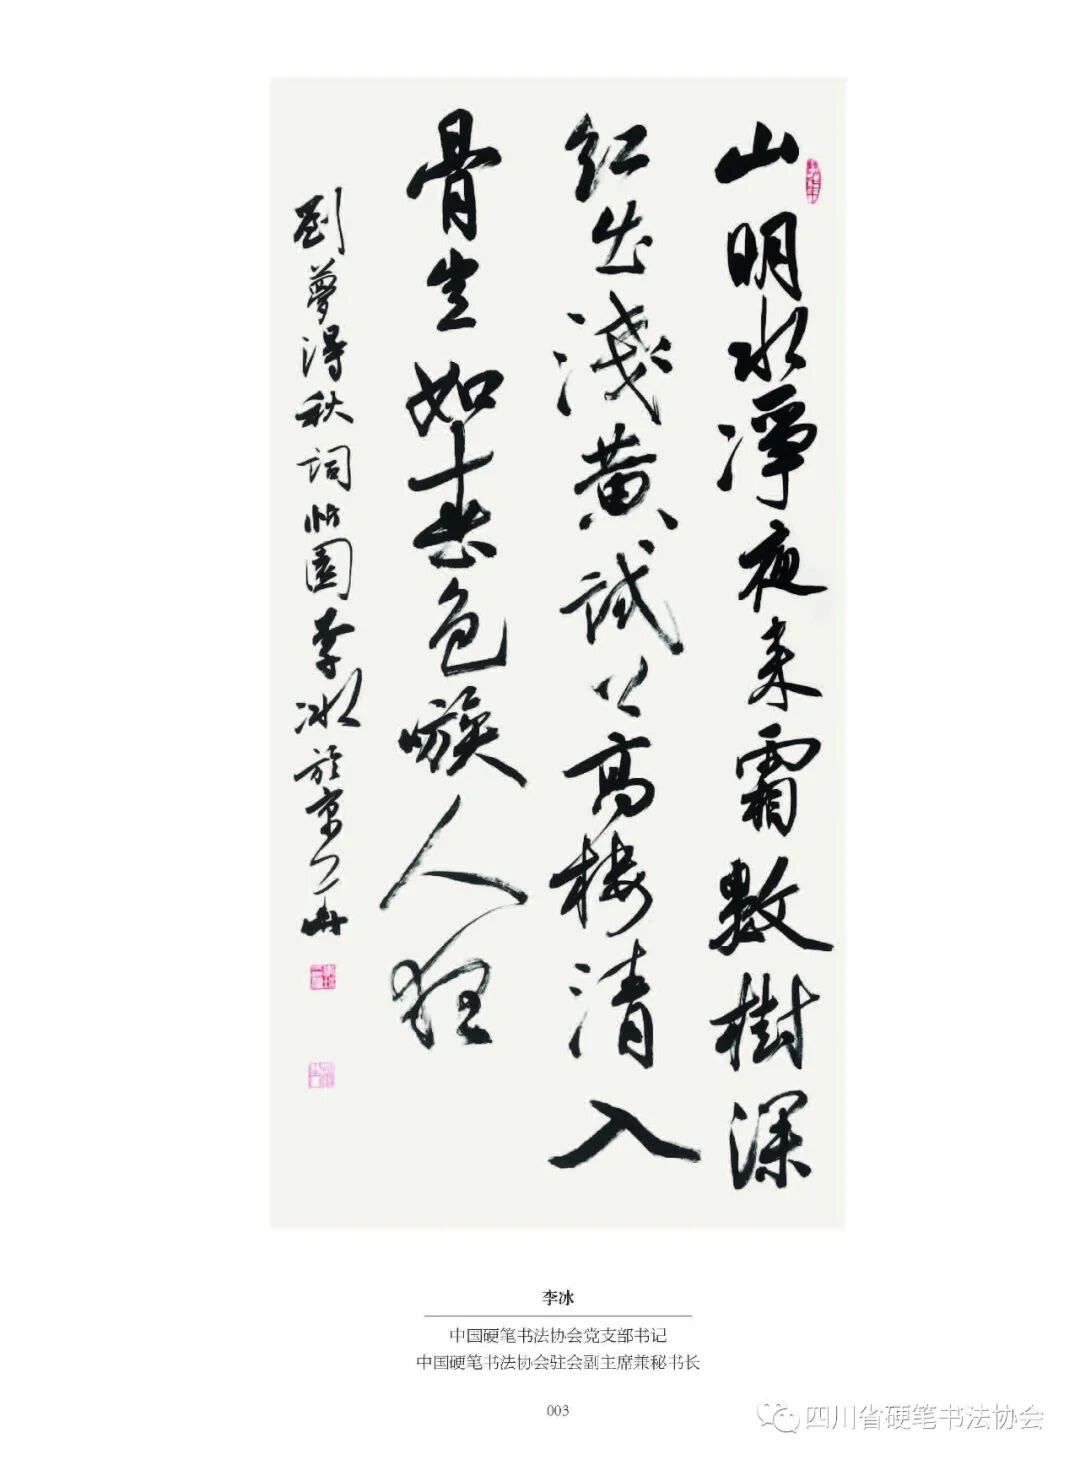 山明水淨夜来霜數樹深
紅出淺黄試上高楼清入
骨豈如春色嗾人狂
劉夢得秋詞 園李冰於京
李冰
中国硬笔书法协会党支部书记
中国硬笔书法协会驻会副主席兼秘书长
003
四川省硬笔书法协会